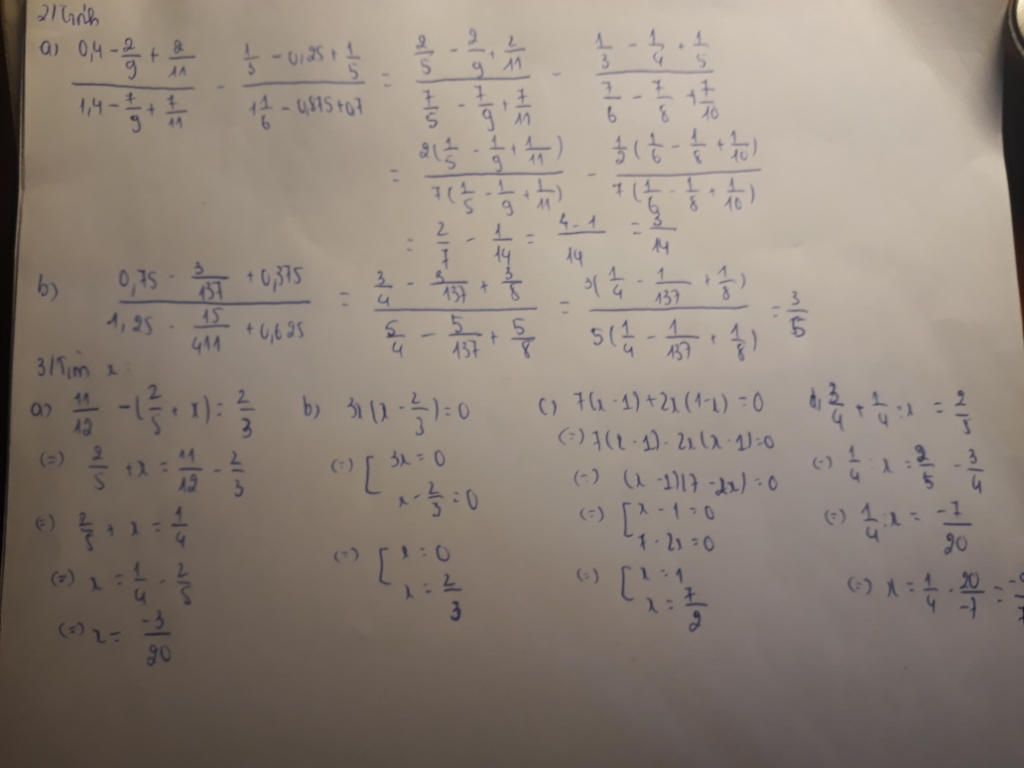 2/Tính
a) (0,4 - 2/9 + 2/11)/(1,4 - 7/9 + 7/11) - (1/3 - 0,25 + 1/5)/(1 1/6 - 0,875 + 0,7) = (2/5 - 2/9 + 2/11)/(7/5 - 7/9 + 7/11) - (1/3 - 1/4 + 1/5)/(7/6 - 7/8 + 7/10)
= 2(1/5 - 1/9 + 1/11)/7(1/5 - 1/9 + 1/11) - 1/2(1/6 - 1/8 + 1/10)/7(1/6 - 1/8 + 1/10)
= 2/7 - 1/14 = (4-1)/14 = 3/14
b) (0,75 - 3/137 + 0,375)/(1,25 - 15/411 + 0,625) = (3/4 - 3/137 + 3/8)/(5/4 - 5/137 + 5/8) = 3(1/4 - 1/137 + 1/8)/5(1/4 - 1/137 + 1/8) = 3/5
3/Tìm x:
a) 11/12 - (2/5 + x) = 2/3
(=) 2/5 + x = 11/12 - 2/3
(=) 2/5 + x = 1/4
(=) x = 1/4 - 2/5
(=) x = -3/20
b) 3x(x - 2/3) = 0
(=) [ 3x = 0
x - 2/3 = 0
(=) [ x = 0
x = 2/3
c) 7(x - 1) + 2x(1-x) = 0
(=) 7(x - 1) - 2x(x - 1) = 0
(=) (x - 1)(7 - 2x) = 0
(=) [ x - 1 = 0
7 - 2x = 0
(=) [ x = 1
x = 7/2
d, 3/4 + 1/4 : x = 2/5
(=) 1/4 : x = 2/5 - 3/4
(=) 1/4 : x = -7/20
(=) x = 1/4 . 20/-7 =